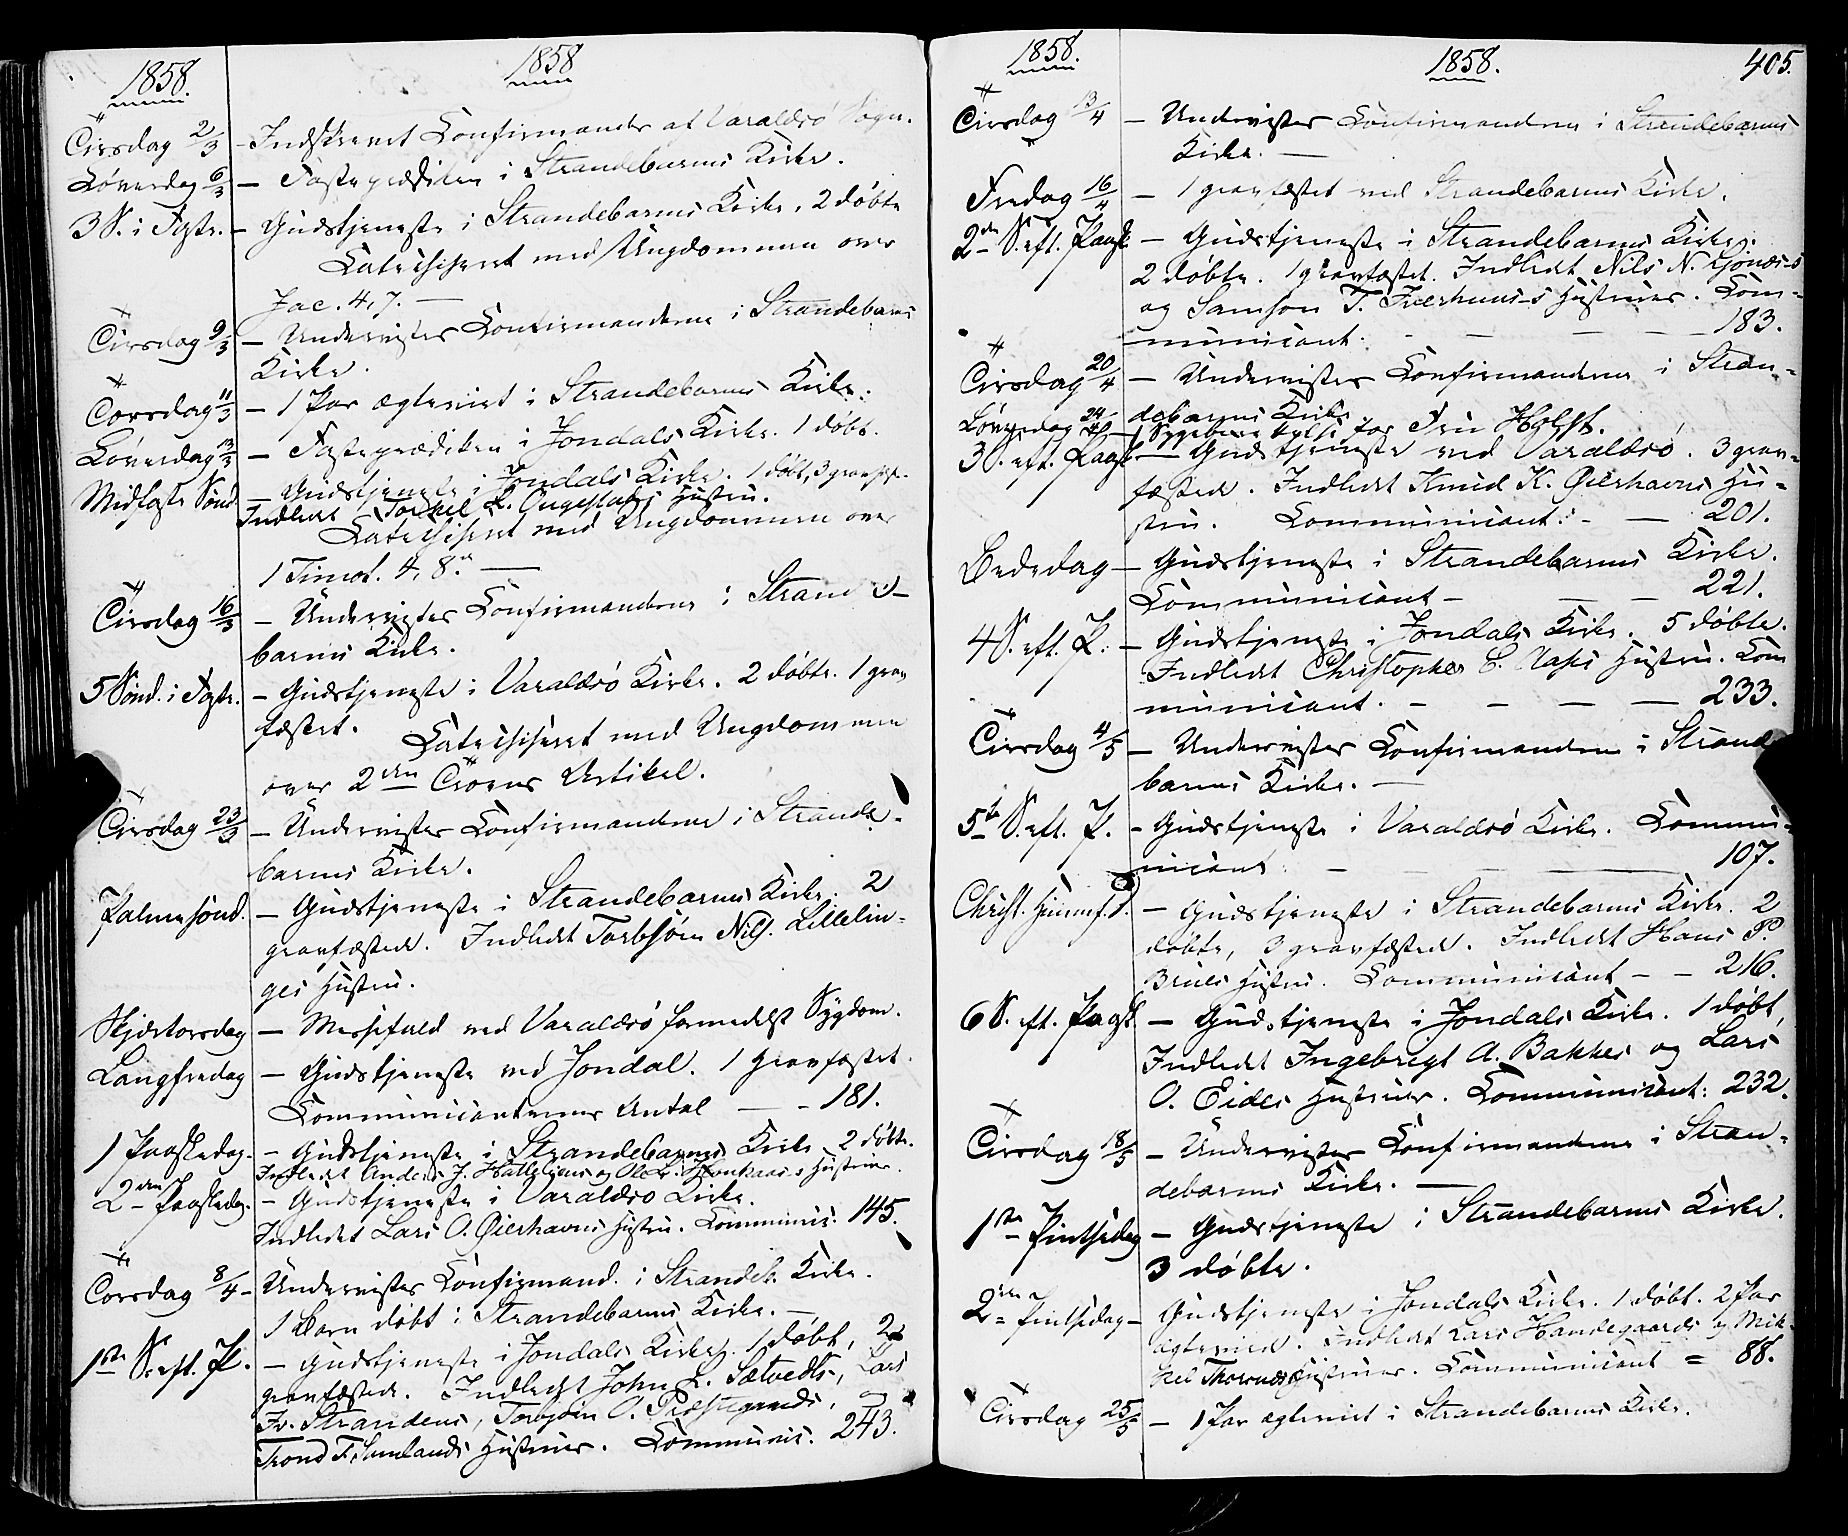 1858.
1858
Tirsdag 2/3 - Indskrevet Confirmander af Varaldsø Sogn.
Løverdag 6/3 - Fasteprædiken i Strandebarms Kirke.
3 S. i Faste. - Gudstjeneste i Strandebarms Kirke, 2 døbte
Catechiseret med Ungdommen over
Jac. 4,7. —
Tirsdag 9/3 - Underviist Confirmanderne i Strandebarms
Kirke.
Torsdag 11/3 - 1 Par ægteviet i Strandebarms Kirke.
Løverdag 13/3 - Fasteprædiken i Jondals Kirke. 1 døbt.
Midfaste Sønd. - Gudstjeneste i Jondals Kirke. 1 døbt, 3 gravfæst.
Indledt Torkel Hustru.
Catechiseret med Ungdommen over
1 Timot. 4, 8. —
Tirsdag 16/3 - Underviist Confirmanderne i Strande-
barms Kirke.
5 Sønd. i Faste. - Gudstjeneste i Varaldsø Kirke. 2 døbte. 1 grav
fæstet. Catechiseret med Ungdommen
over 2den Troens Artikel.
Tirsdag 23/3 - Underviist Confirmanderne i Strande-
barms Kirke.
Palmesønd. - Gudstjeneste i Strandebarms Kirke. 2
gravfæstede. Indledt Torbjørn Nils. Lillelin-
ges Hustru.
Skjærtorsdag - Messefald ved Varaldsø formedelst Sygdom.
Langfredag - Gudstjeneste ved Jondal. 1 gravfæstet.
Communicanternes Antal — - 181.
1 Paaskedag. - Gudstjeneste i Strandebarms Kirke 2 døbte.
Indledt Anders J. og Ole Hustruer.
2den Paaskedag. - Gudstjeneste i Varaldsø Kirke.
Indledt Lars O. Øierhavns Hustru. Communic. 145.
Torsdag 8/4 - Underviist Confirmand. i Strandeb. Kirke.
1 Barn døbt i Strandebarms Kirke. —
1ste S. eft. P. - Gudstjeneste i Jondals Kirke. 1 døbt, 2
gravfæstede. Indledt John L. Sætvedts, Lars
Fr. Strandens, Torbjørn O. Præstegaards, og
Trond F. Samlands Hustruer. Communic. 243.
1858.
1858.
405.
Tirsdag 13/4 - Underviist Confirmanderne i Strandebarms
Kirke. —
Fredag 16/4 - 1 gravfæstet ved Strandebarms Kirke.
2den S. eft. Paask. - Gudstjeneste i Strandebarms Kirke.
2 døbte. 1 gravfæstet. Indledt Nils N.
og Samson T. Hustruer. Com-
municant. - - - — 183.
Tirsdag 20/4 - Underviist Confirmanderne i Stran-
debarms Kirke
Løverdag 24/4 - 1 for Fru Holst.
3 S. eft. Paask. - Gudstjeneste ved Varaldsø. 3 grav-
fæstede. Indledt Knud K. Øierhavns Hu-
stru. Communicant: - — 201.
Bededag - Gudstjeneste i Strandebarms Kirke.
Communicant - — — 221.
4 S. eft. P. - Gudstjeneste i Jondals Kirke. 5 døbte.
Indledt Christopher Hustru. Com
municant. - - — — 233.
Tirsdag 4/5 - Underviist Confirmanderne i Strande
barms Kirke. —
5te S. eft. P. - Gudstjeneste i Varaldsø Kirke. Commu-
nicant. - - — 107.
Christ. Himmelf. D. - Gudstjeneste i Strandebarms Kirke. 2
døbte, 3 gravfæstede. Indledt Hans P.
Hustru. Communicant - - 216.
6 S. eft. Paask. - Gudstjeneste i Jondals Kirke. 1 døbt,
Indledt Ingebrigt A. Bakkes og Lars
O. Eides Hustruer. Communicant: 232.
Tirsdag 18/5 - Underviist Confirmanderne i Stran-
debarms Kirke. —
1ste Pintsedag - Gudstjeneste i Strandebarms Kirke.
3 døbte.
2den Pintsedag - Gudstjeneste i Jondals Kirke. 1 døbt. 2 Par
ægteviede. Indledt Lars Handegaards og Mik-
kel Hustruer. Communicant = 88.
Tirsdag 25/5 - 1 Par ægteviet i Strandebarms Kirke.